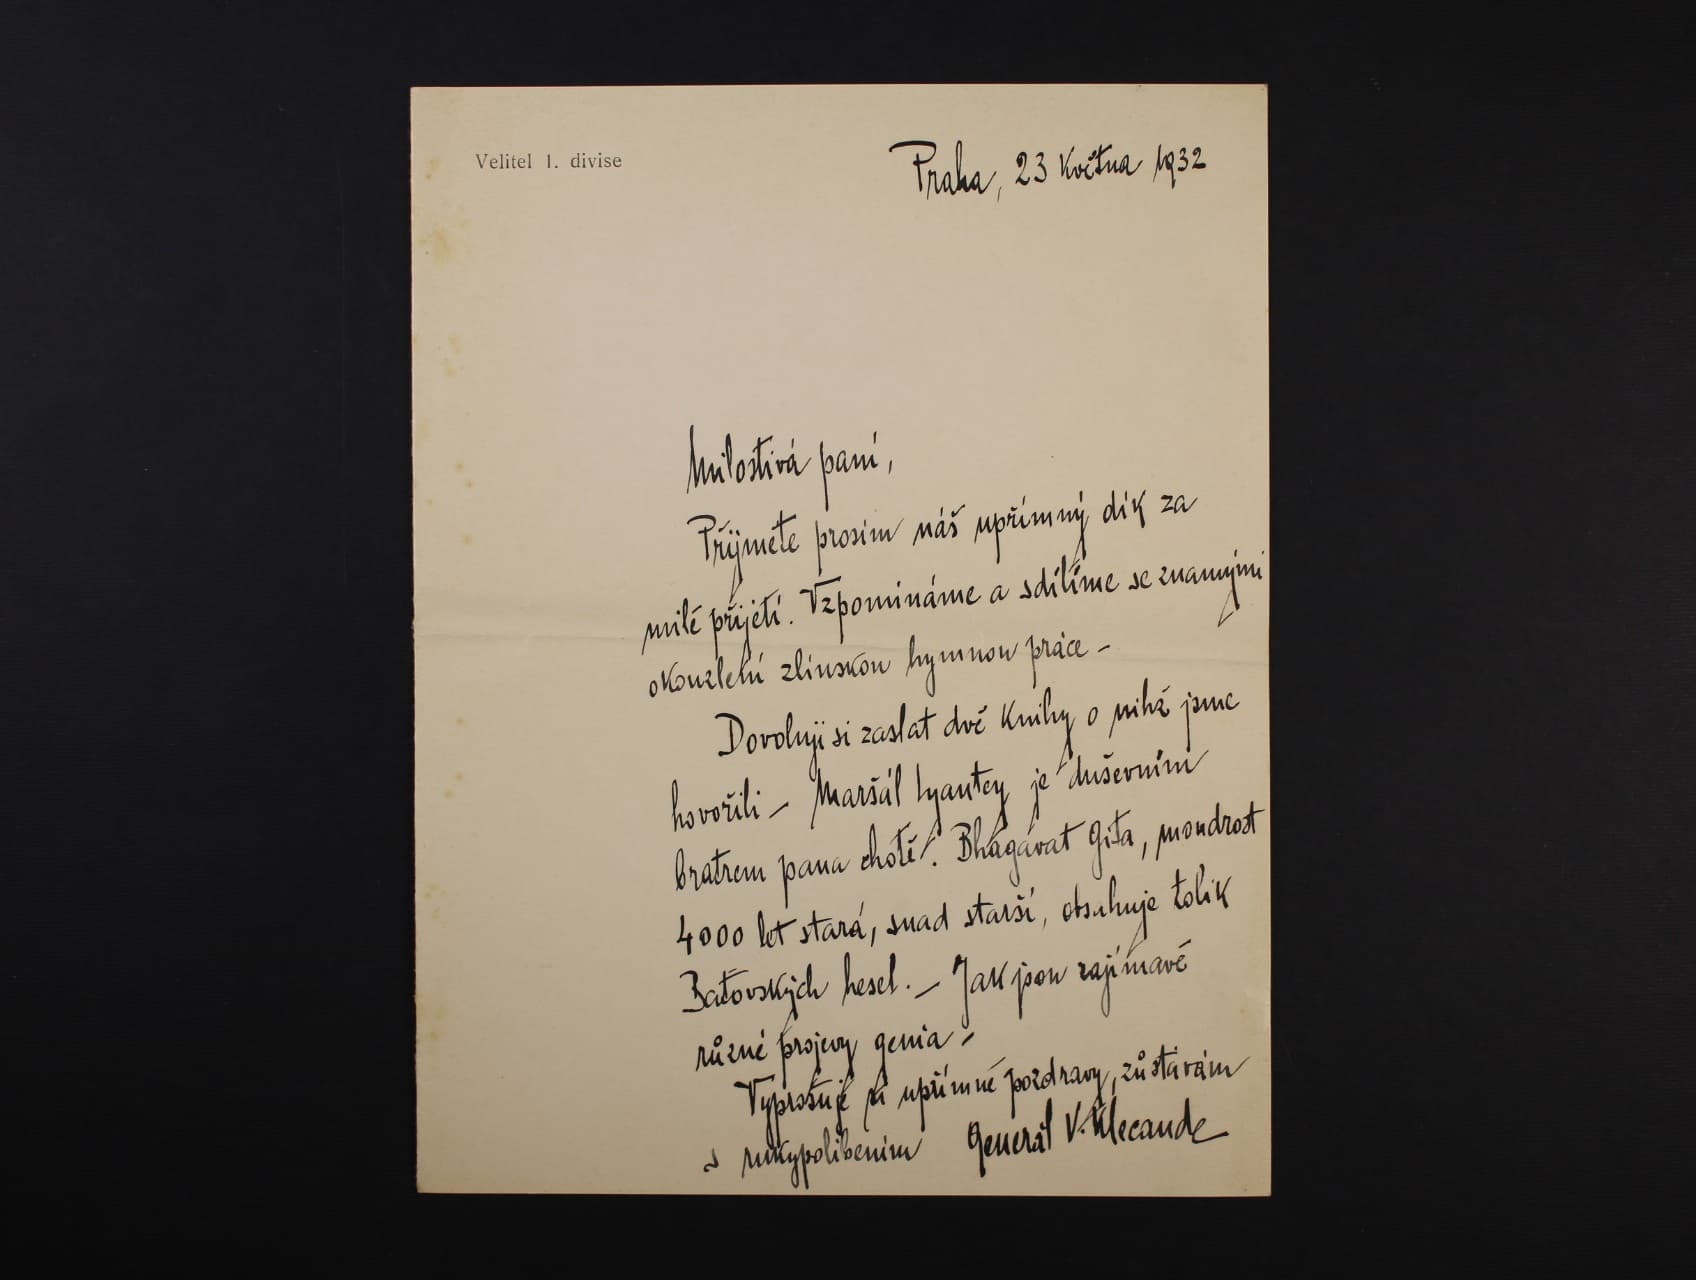 Velitel 1. divise
Praha, 23 Května 1932
Milostivá paní,
Přijměte prosím náš upřímný dík za
milé přijetí. Vzpomínáme a sdílíme se známými
okouzlení zlínskou hymnou práce –
Dovoluji si zaslat dvě knihy o nihž jsme
hovořili – Maršál Lyautey je duševním
bratrem pana chotě. Bhagavat Gita, moudrost
4000 let stará, snad starší, obsahuje tolik
Baťovských hesel. – Jak jsou zajímavé
různé projevy genia –
Vyprošuje si upřímné pozdravy, zůstávám
s rukypolíbením Generál V. Klecanda